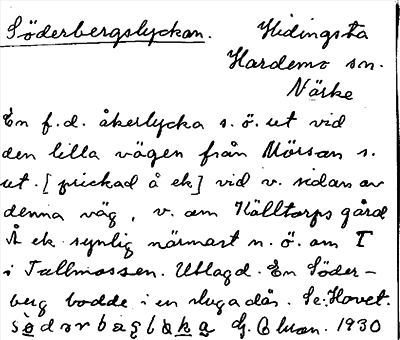 Söderbergslyckan. Hidingsta
Hardemo sn.
Närke
En f.d. åkerlycka s.ö. ut vid
den lilla vägen från Mörsan s.
ut. [prickad å ek] vid v. sidan av
denna väg, v. om Hälltorps gård
Å ek synlig närmast n.ö. om T
i Tallmossen. Utlagd. En Söder-
berg bodde i en stuga där. Se: Hovet.
G. 1930